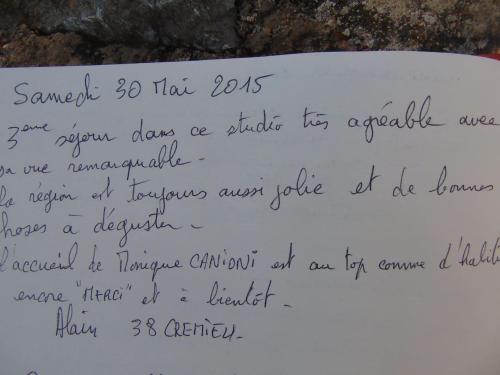 Samedi 30 Mai 2015
3eme séjour dans ce studio très agréable avec
sa vue remarquable.
la région est toujours aussi jolie et de bonnes
hoses à déguster.
l'accueil de Monique CANIONI est au top comme d'habit
encre "MERCI" et à bientôt.
Alain 38 CREMIEU.